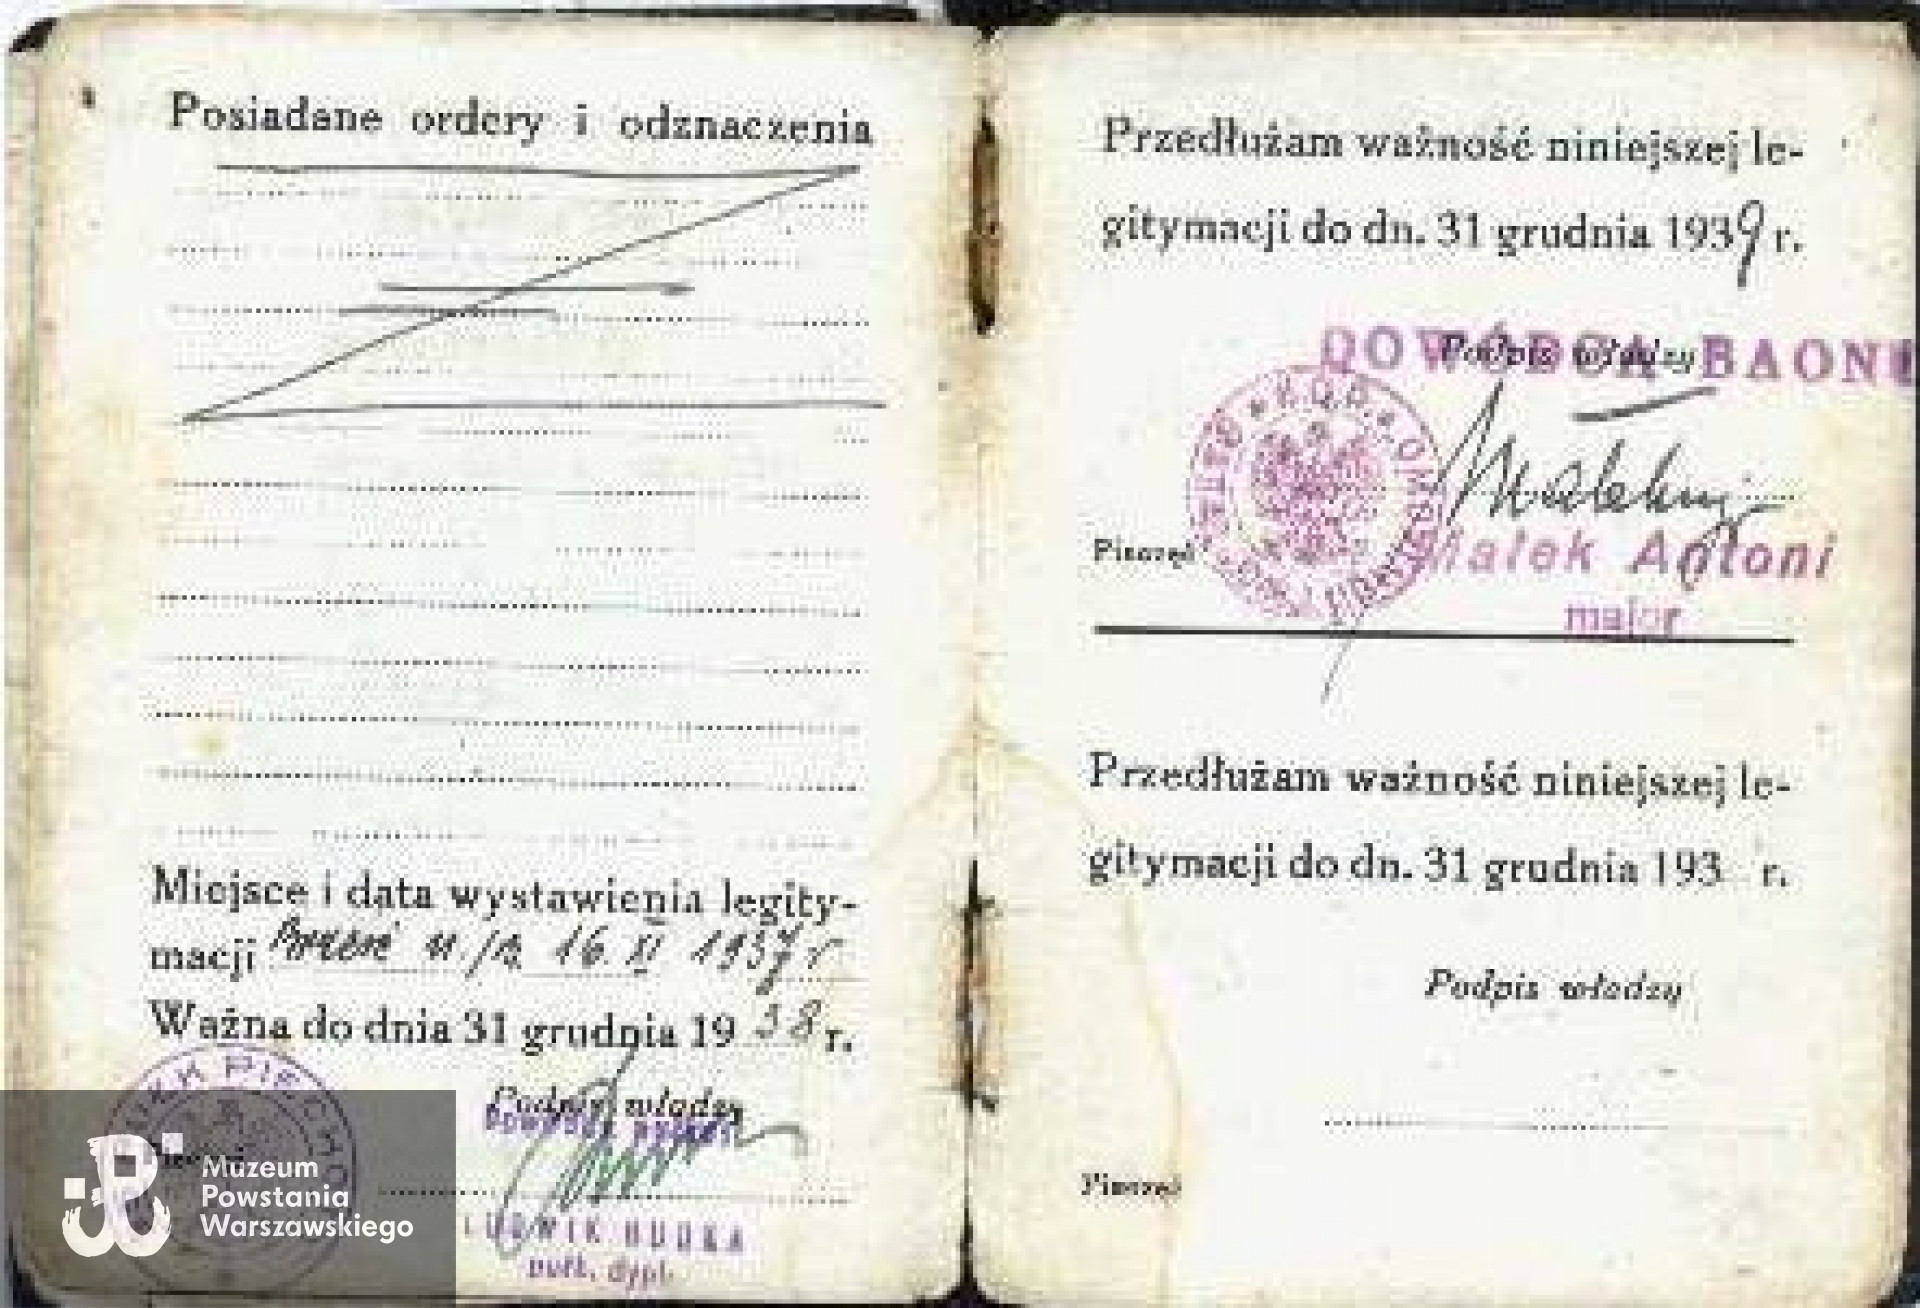 Posiadane ordery i odznaczenia
Miejsce i data wystawienia legity-
macji Brześć n./B. 16. XI 1937 r
Ważna do dnia 31 grudnia 1938 r.
Podpis władzy
LUDWIK
ppłk. dypl.
Muzeum
Powstania
Warszawskiego
Przedłużam ważność niniejszej le-
gitymacji do dn. 31 grudnia 1939 r.
Podpis władzy
DOWÓDCA BAONU
Pieczęć
Małek Antoni
major
Przedłużam ważność niniejszej le-
gitymacji do dn. 31 grudnia 193 r.
Podpis władzy
Pieczęć